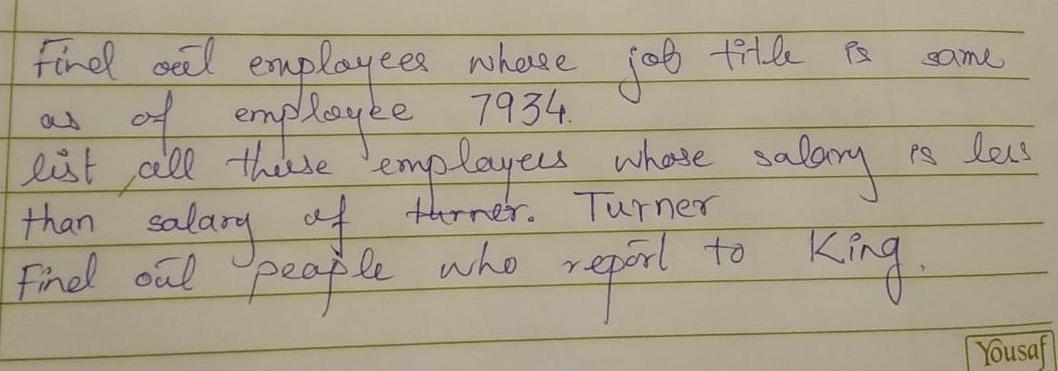 Find out employees whose job title is same
as of employee 7934.
list all these employees whose salary is less
than salary of turner. Turner
Find out people who report to King.
Yousaf